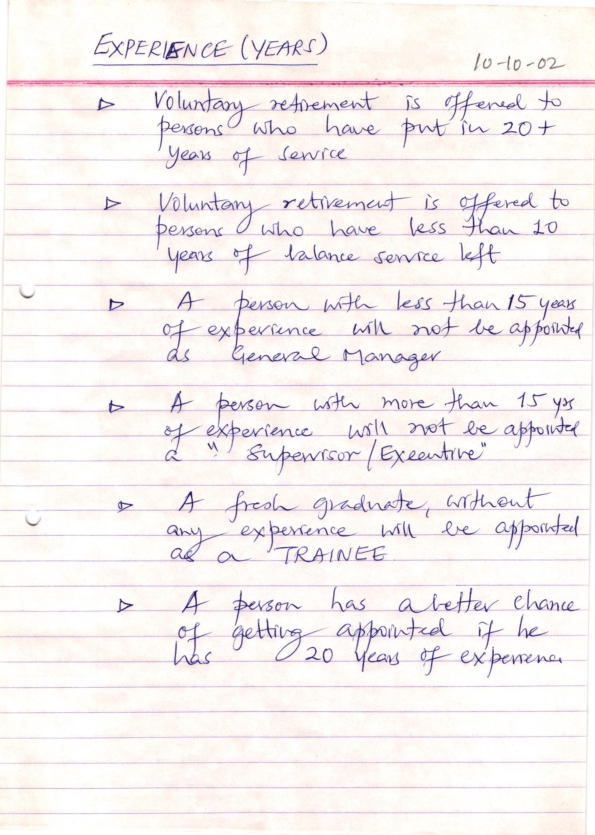 EXPERIENCE (YEARS)
10-10-02
▷ Voluntary retirement is offered to
persons who have put in 20+
years of service
▷ Voluntary retirement is offered to
persons who have less than 10
years of balance service left
▷ A person with less than 15 years
of experience will not be appointed
as General Manager
▷ A person with more than 15 yrs
of experience will not be appointed
a "Supervisor/Executive"
▷ A fresh graduate, without
any experience will be appointed
as a TRAINEE
▷ A person has a better chance
of getting appointed if he
has 20 years of experience